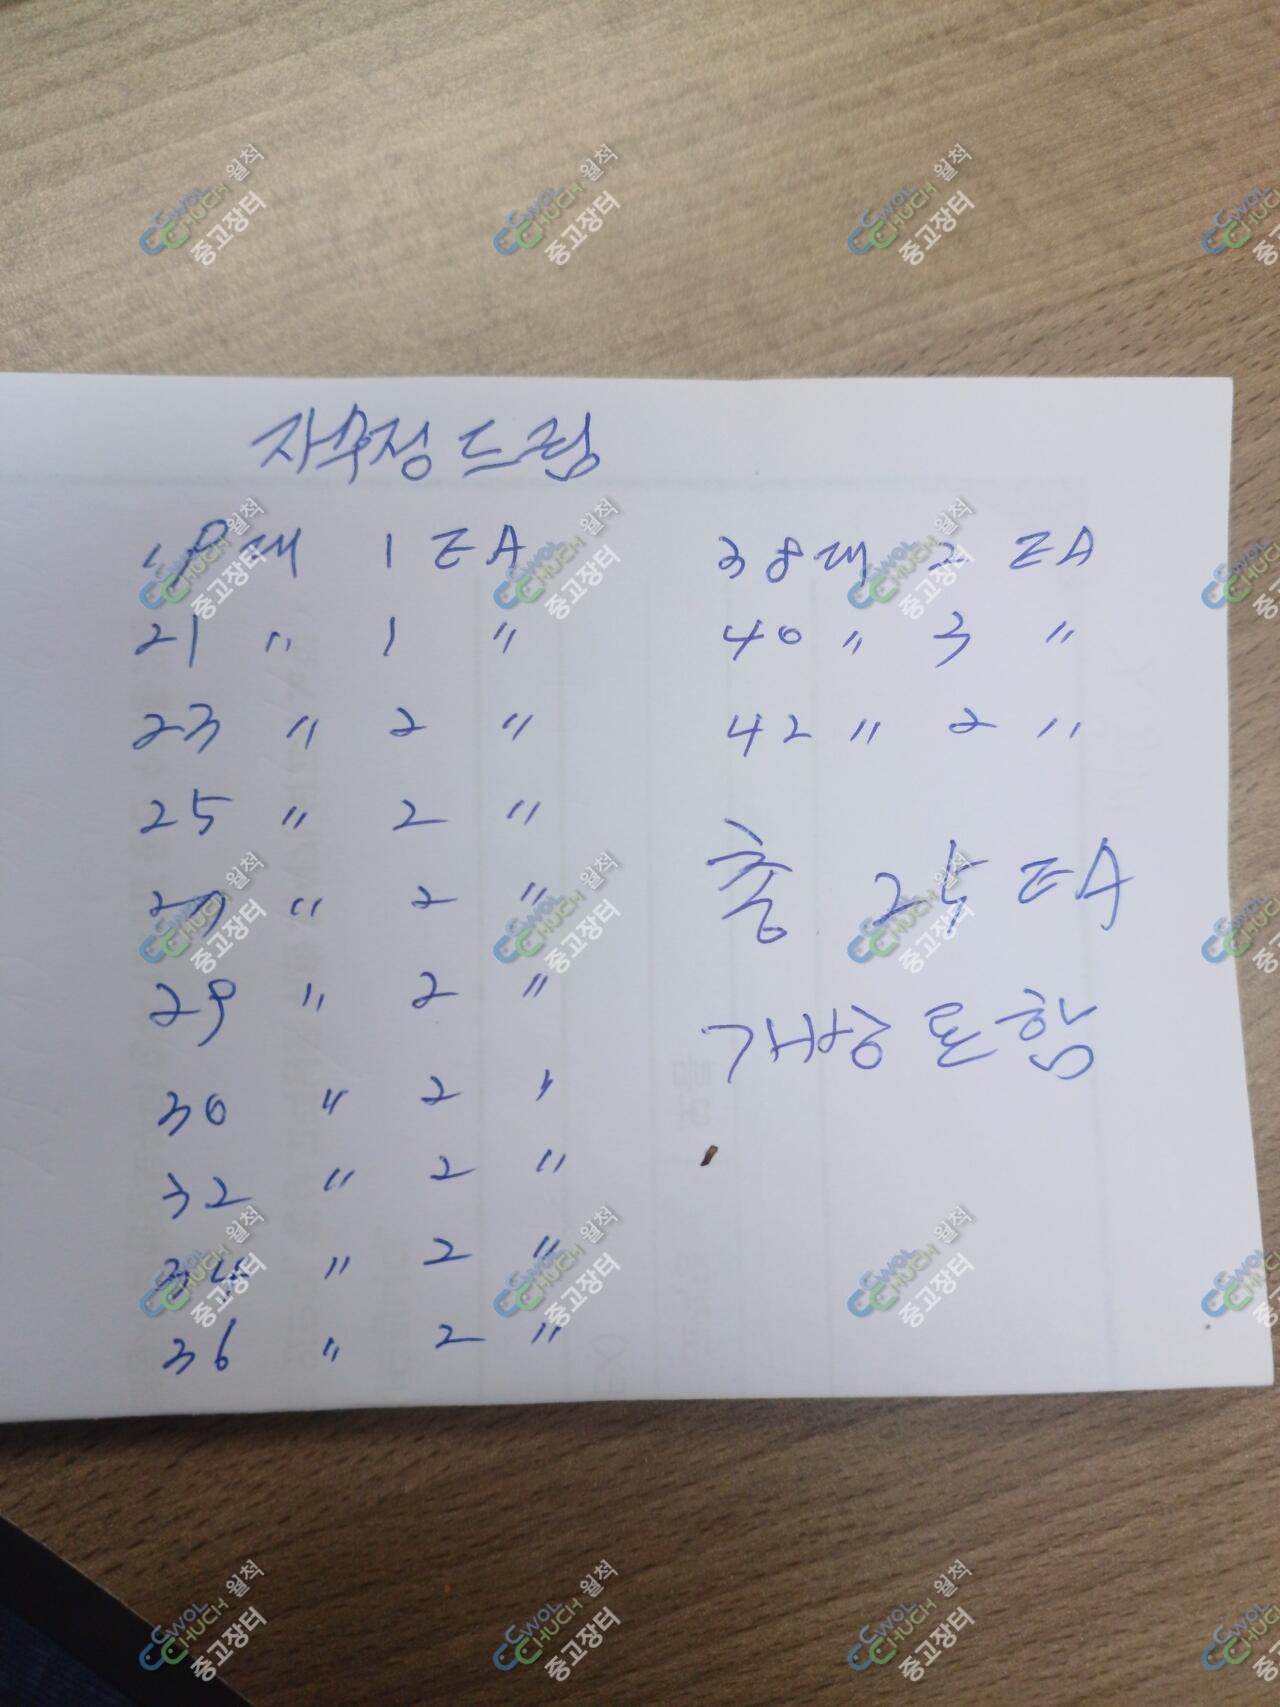 자수정 드림
19대 1 EA
21 〃 1 〃
23 〃 2 〃
25 〃 2 〃
27 〃 2 〃
29 〃 2 〃
30 〃 2 〃
32 〃 2 〃
34 〃 2 〃
36 〃 2 〃
38대 2 EA
40 〃 3 〃
42 〃 2 〃
총 25 EA
개상 포함
CWOL CHUCH 월척 중고장터